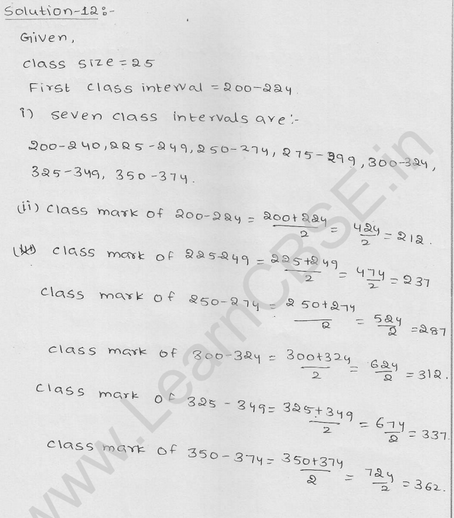 Solution-12:-
Given,
class size = 25
First class interval = 200-224
i) seven class intervals are:-
200-240, 225-249, 250-274, 275-299, 300-324,
325-349, 350-374.
(ii) class mark of 200-224 = 200+224/2 = 424/2 = 212.
class mark of 225-249 = 225+249/2 = 474/2 = 237
class mark of 250-274 = 250+274/2 = 524/2 = 287
class mark of 300-324 = 300+324/2 = 624/2 = 312.
class mark of 325-349 = 325+349/2 = 674/2 = 337.
class mark of 350-374 = 350+374/2 = 724/2 = 362.
www.LearnCBSE.in